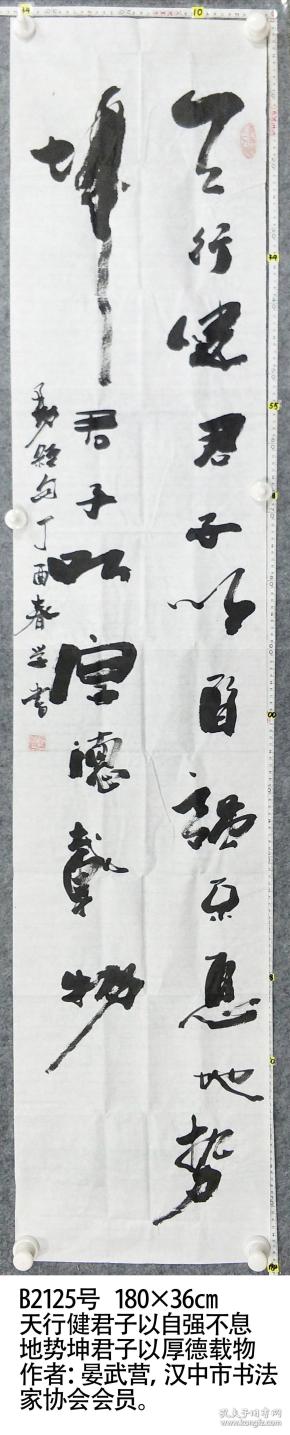 天行健君子以自强不息地势
坤君子以厚德载物
丁酉春 书
B2125号 180×36cm
天行健君子以自强不息
地势坤君子以厚德载物
作者：晏武营，汉中市书法
家协会会员。
孔夫子旧书网